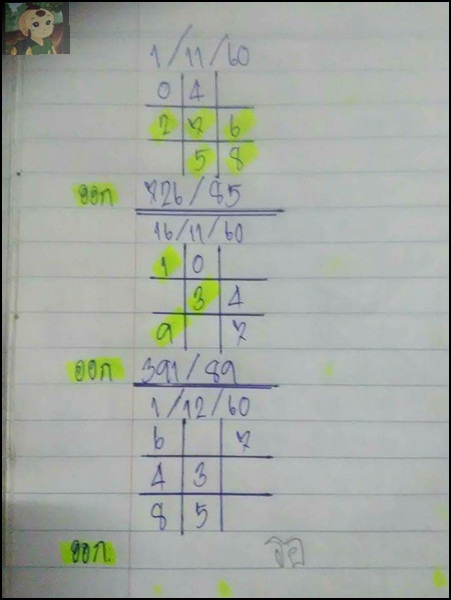 1/11/60
0 4
2 7 6
5 8
ออก 726/85
16/11/60
1 0
3 4
9 7
ออก 391/89
1/12/60
6 7
4 3
8 5
ออก. รอ